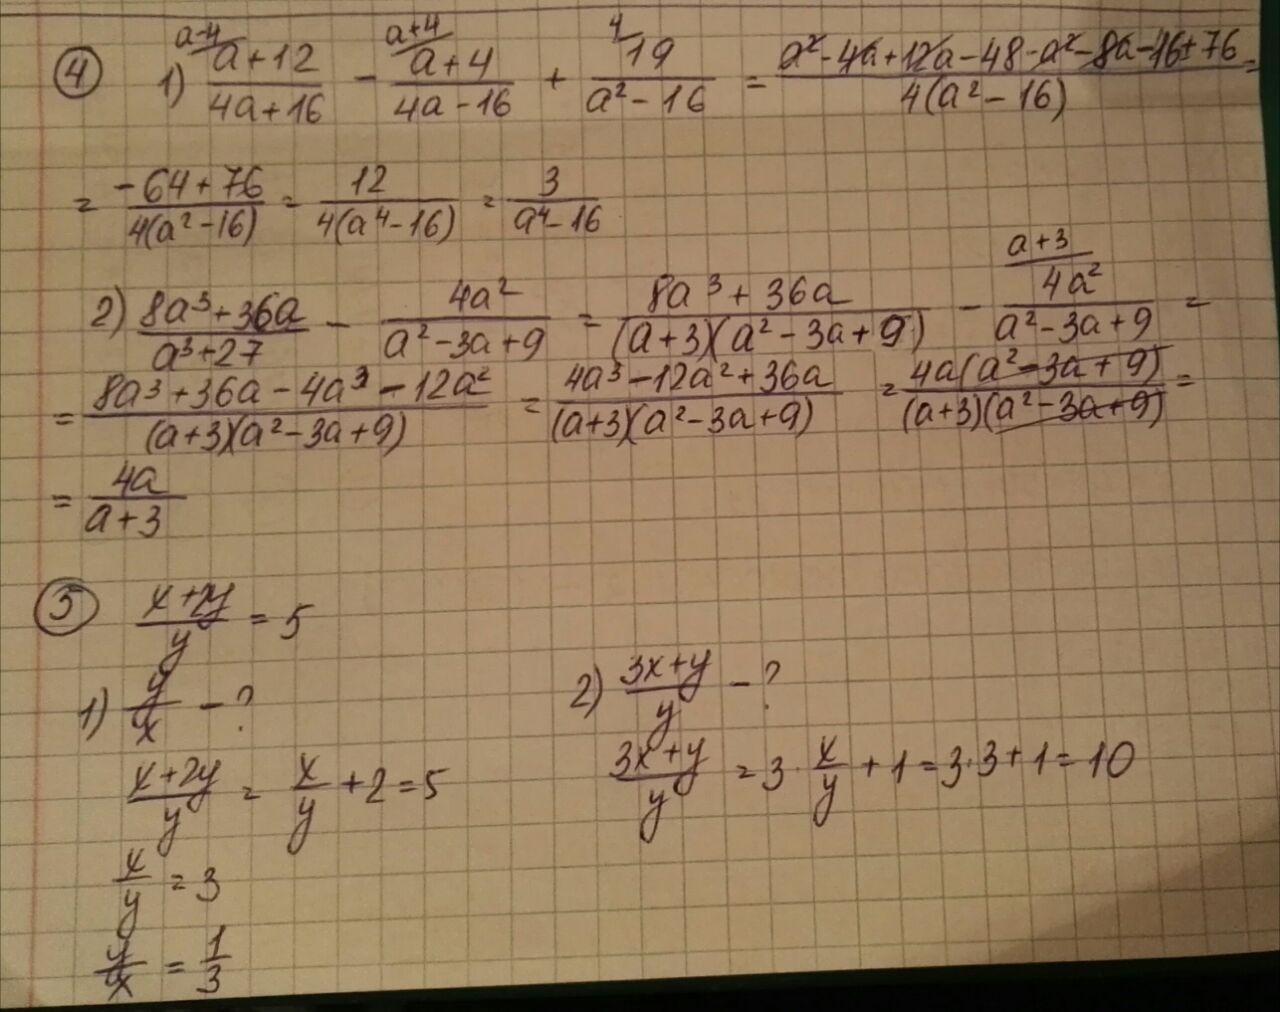 ④ 1) (a-4/ (a+12)/(4a+16) - (a+4/ (a+4)/(4a-16) + 4/ 19/(a²-16) = (a²-4a+12a-48-a²-8a-16+76)/(4(a²-16)) =
= (-64+76)/(4(a²-16)) = 12/(4(a⁴-16)) = 3/(a⁴-16)
2) (8a³+36a)/(a³+27) - 4a²/(a²-3a+9) = (8a³+36a)/((a+3)(a²-3a+9)) - (a+3/ 4a²/(a²-3a+9) =
= (8a³+36a-4a³-12a²)/((a+3)(a²-3a+9)) = (4a³-12a²+36a)/((a+3)(a²-3a+9)) = 4a(a²-3a+9)/((a+3)(a²-3a+9)) =
= 4a/(a+3)
⑤ (x+2y)/y = 5
1) y/x - ?
(x+2y)/y = x/y + 2 = 5
x/y = 3
y/x = 1/3
2) (3x+y)/y - ?
(3x+y)/y = 3·x/y + 1 = 3·3+1 = 10